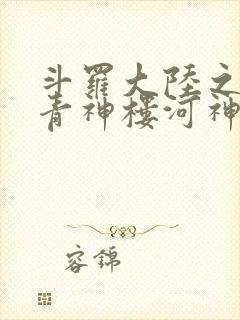 斗羅大陸之
青神樓河神
容錦